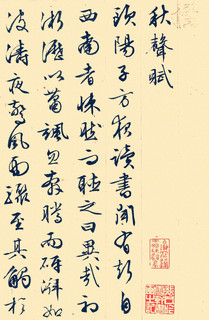 秋聲賦
歐陽子方夜讀書聞有聲自
西南者悚然而聽之曰異哉初
淅瀝以蕭颯忽奔騰而砰湃如
波濤夜驚風雨驟至其觸於